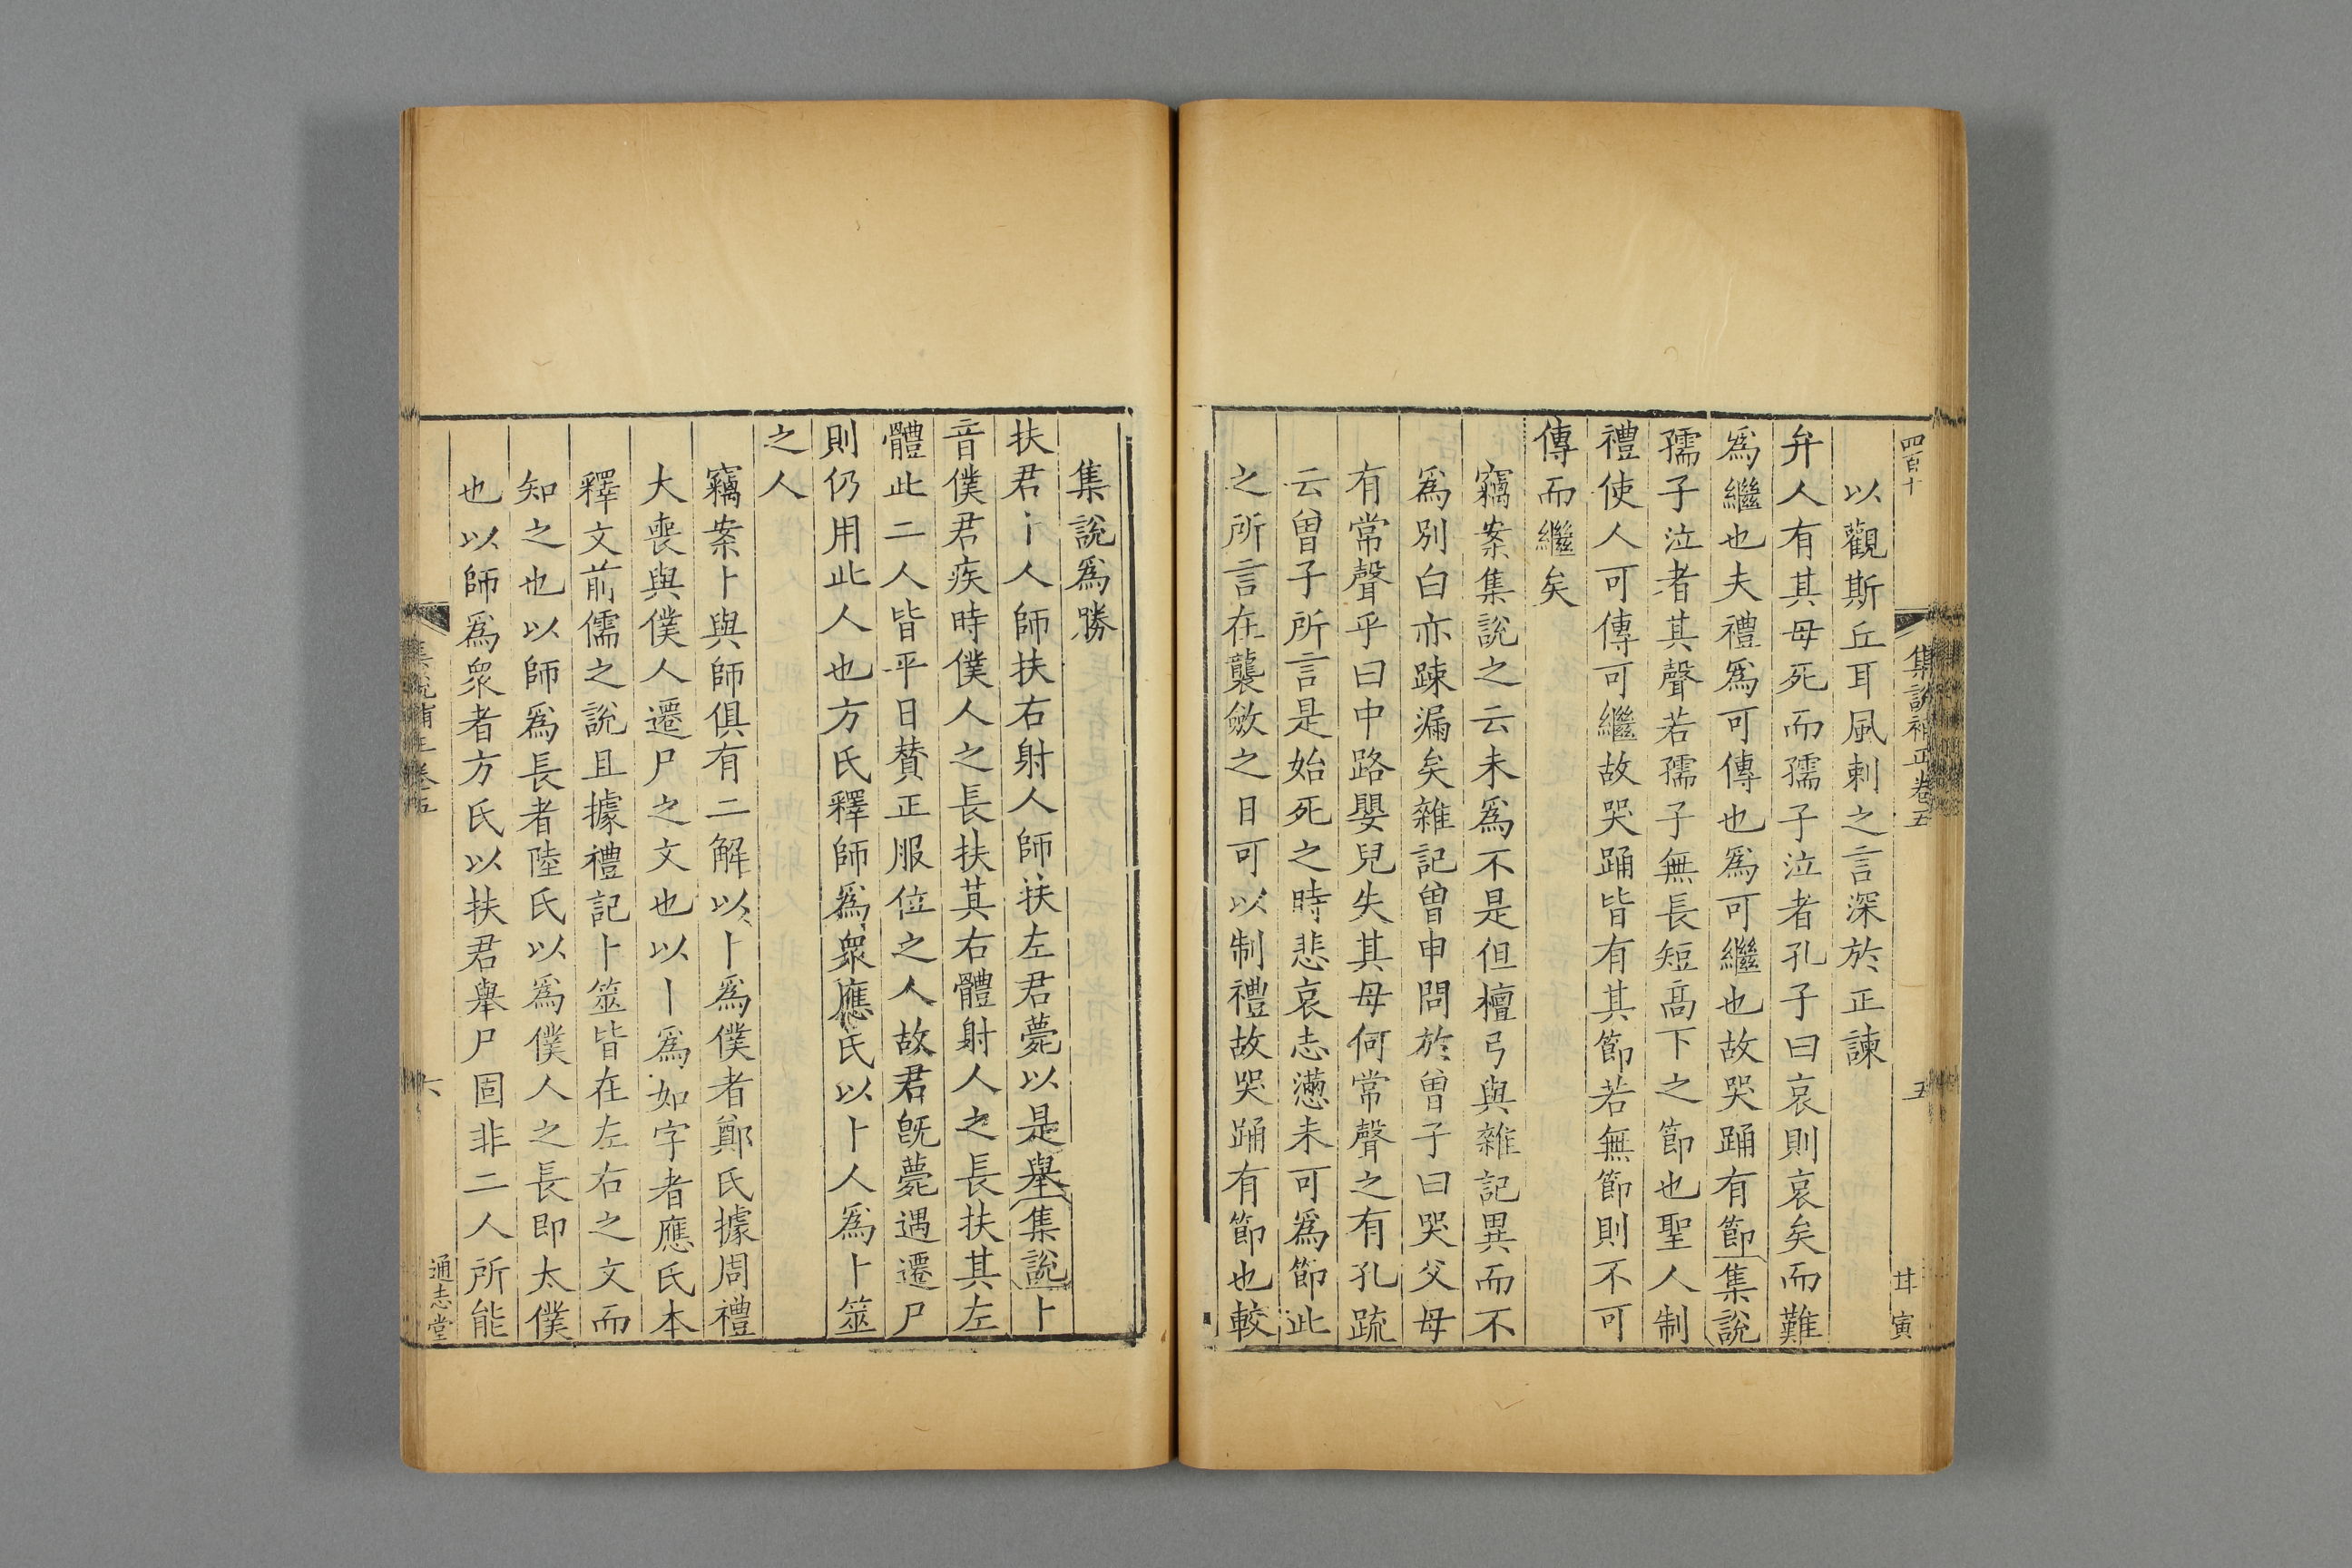 四百十
集說補正卷五
五
甘寅
以觀斯丘耳風刺之言深於正諫
弁人有其母死而孺子泣者孔子曰哀則哀矣而難
爲繼也夫禮爲可傳也爲可繼也故哭踊有節集說
孺子泣者其聲若孺子無長短高下之節也聖人制
禮使人可傳可繼故哭踊皆有其節若無節則不可
傳而繼矣
竊案集說之云未爲不是但檀弓與雜記異而不
爲別白亦踈漏矣雜記曾申問於曾子曰哭父母
有常聲乎曰中路嬰兒失其母何常聲之有孔疏
云曾子所言是始死之時悲哀志懣未可爲節此
之所言在襲斂之日可以制禮故哭踊有節也較
集說爲勝
扶君卜人師扶右射人師扶左君薨以是舉集說卜
音僕君疾時僕人之長扶其右體射人之長扶其左
體此二人皆平日賛正服位之人故君旣薨遇遷尸
則仍用此人也方氏釋師爲衆應氏以卜人爲卜筮
之人
竊案卜與師俱有二解以卜爲僕者鄭氏據周禮
大喪與僕人遷尸之文也以卜爲如字者應氏本
釋文前儒之說且據禮記卜筮皆在左右之文而
知之也以師爲長者陸氏以爲僕人之長即太僕
也以師爲衆者方氏以扶君舉尸固非二人所能
集說補正卷五
六
通志堂